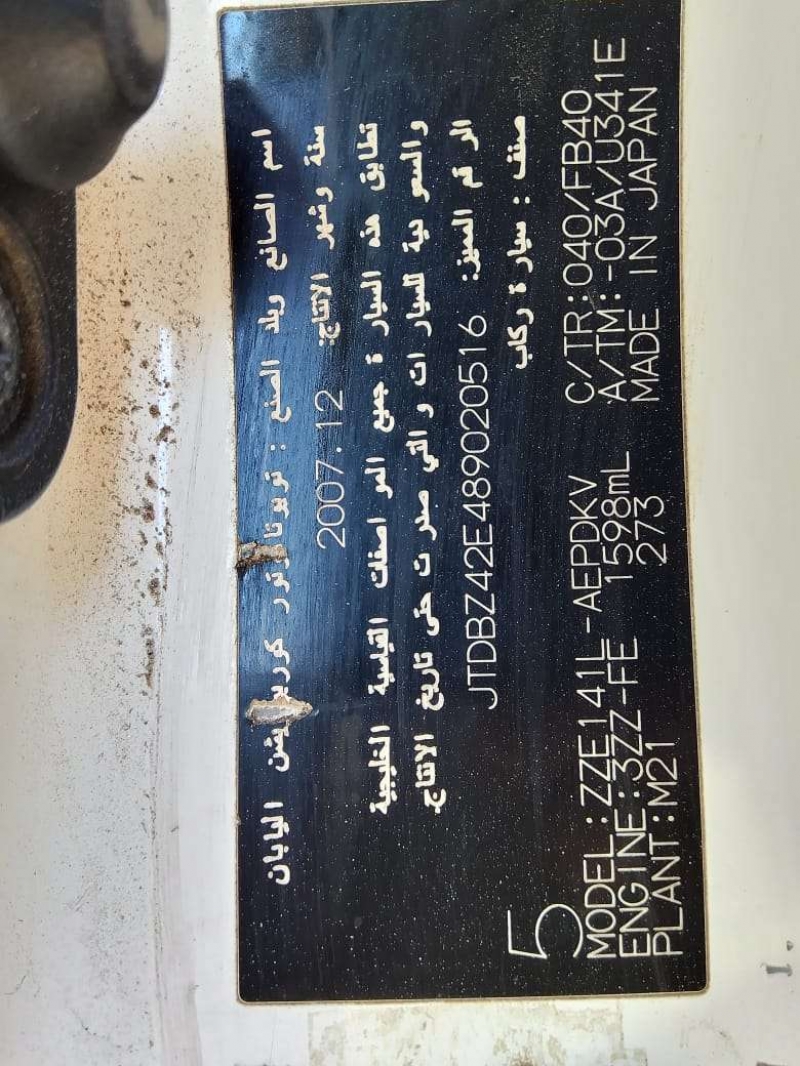 اسم الصانع وبلد الصنع : تويوتا موتور كوربيشن اليابان
سنة وشهر الانتاج: 2007.12
تطابق هذه السيارة جميع المواصفات القياسية الخليجية
والسعودية للسيارات والتي صدرت حتى تاريخ الانتاج.
الرقم المميز: JTDBZ42E489020516
صنف : سيارة ركاب
5
MODEL:ZZE141L-AEPDKV C/TR:040/FB40
ENGINE:3ZZ-FE 1598mL A/TM:-03A/U341E
PLANT:M21 273 MADE IN JAPAN